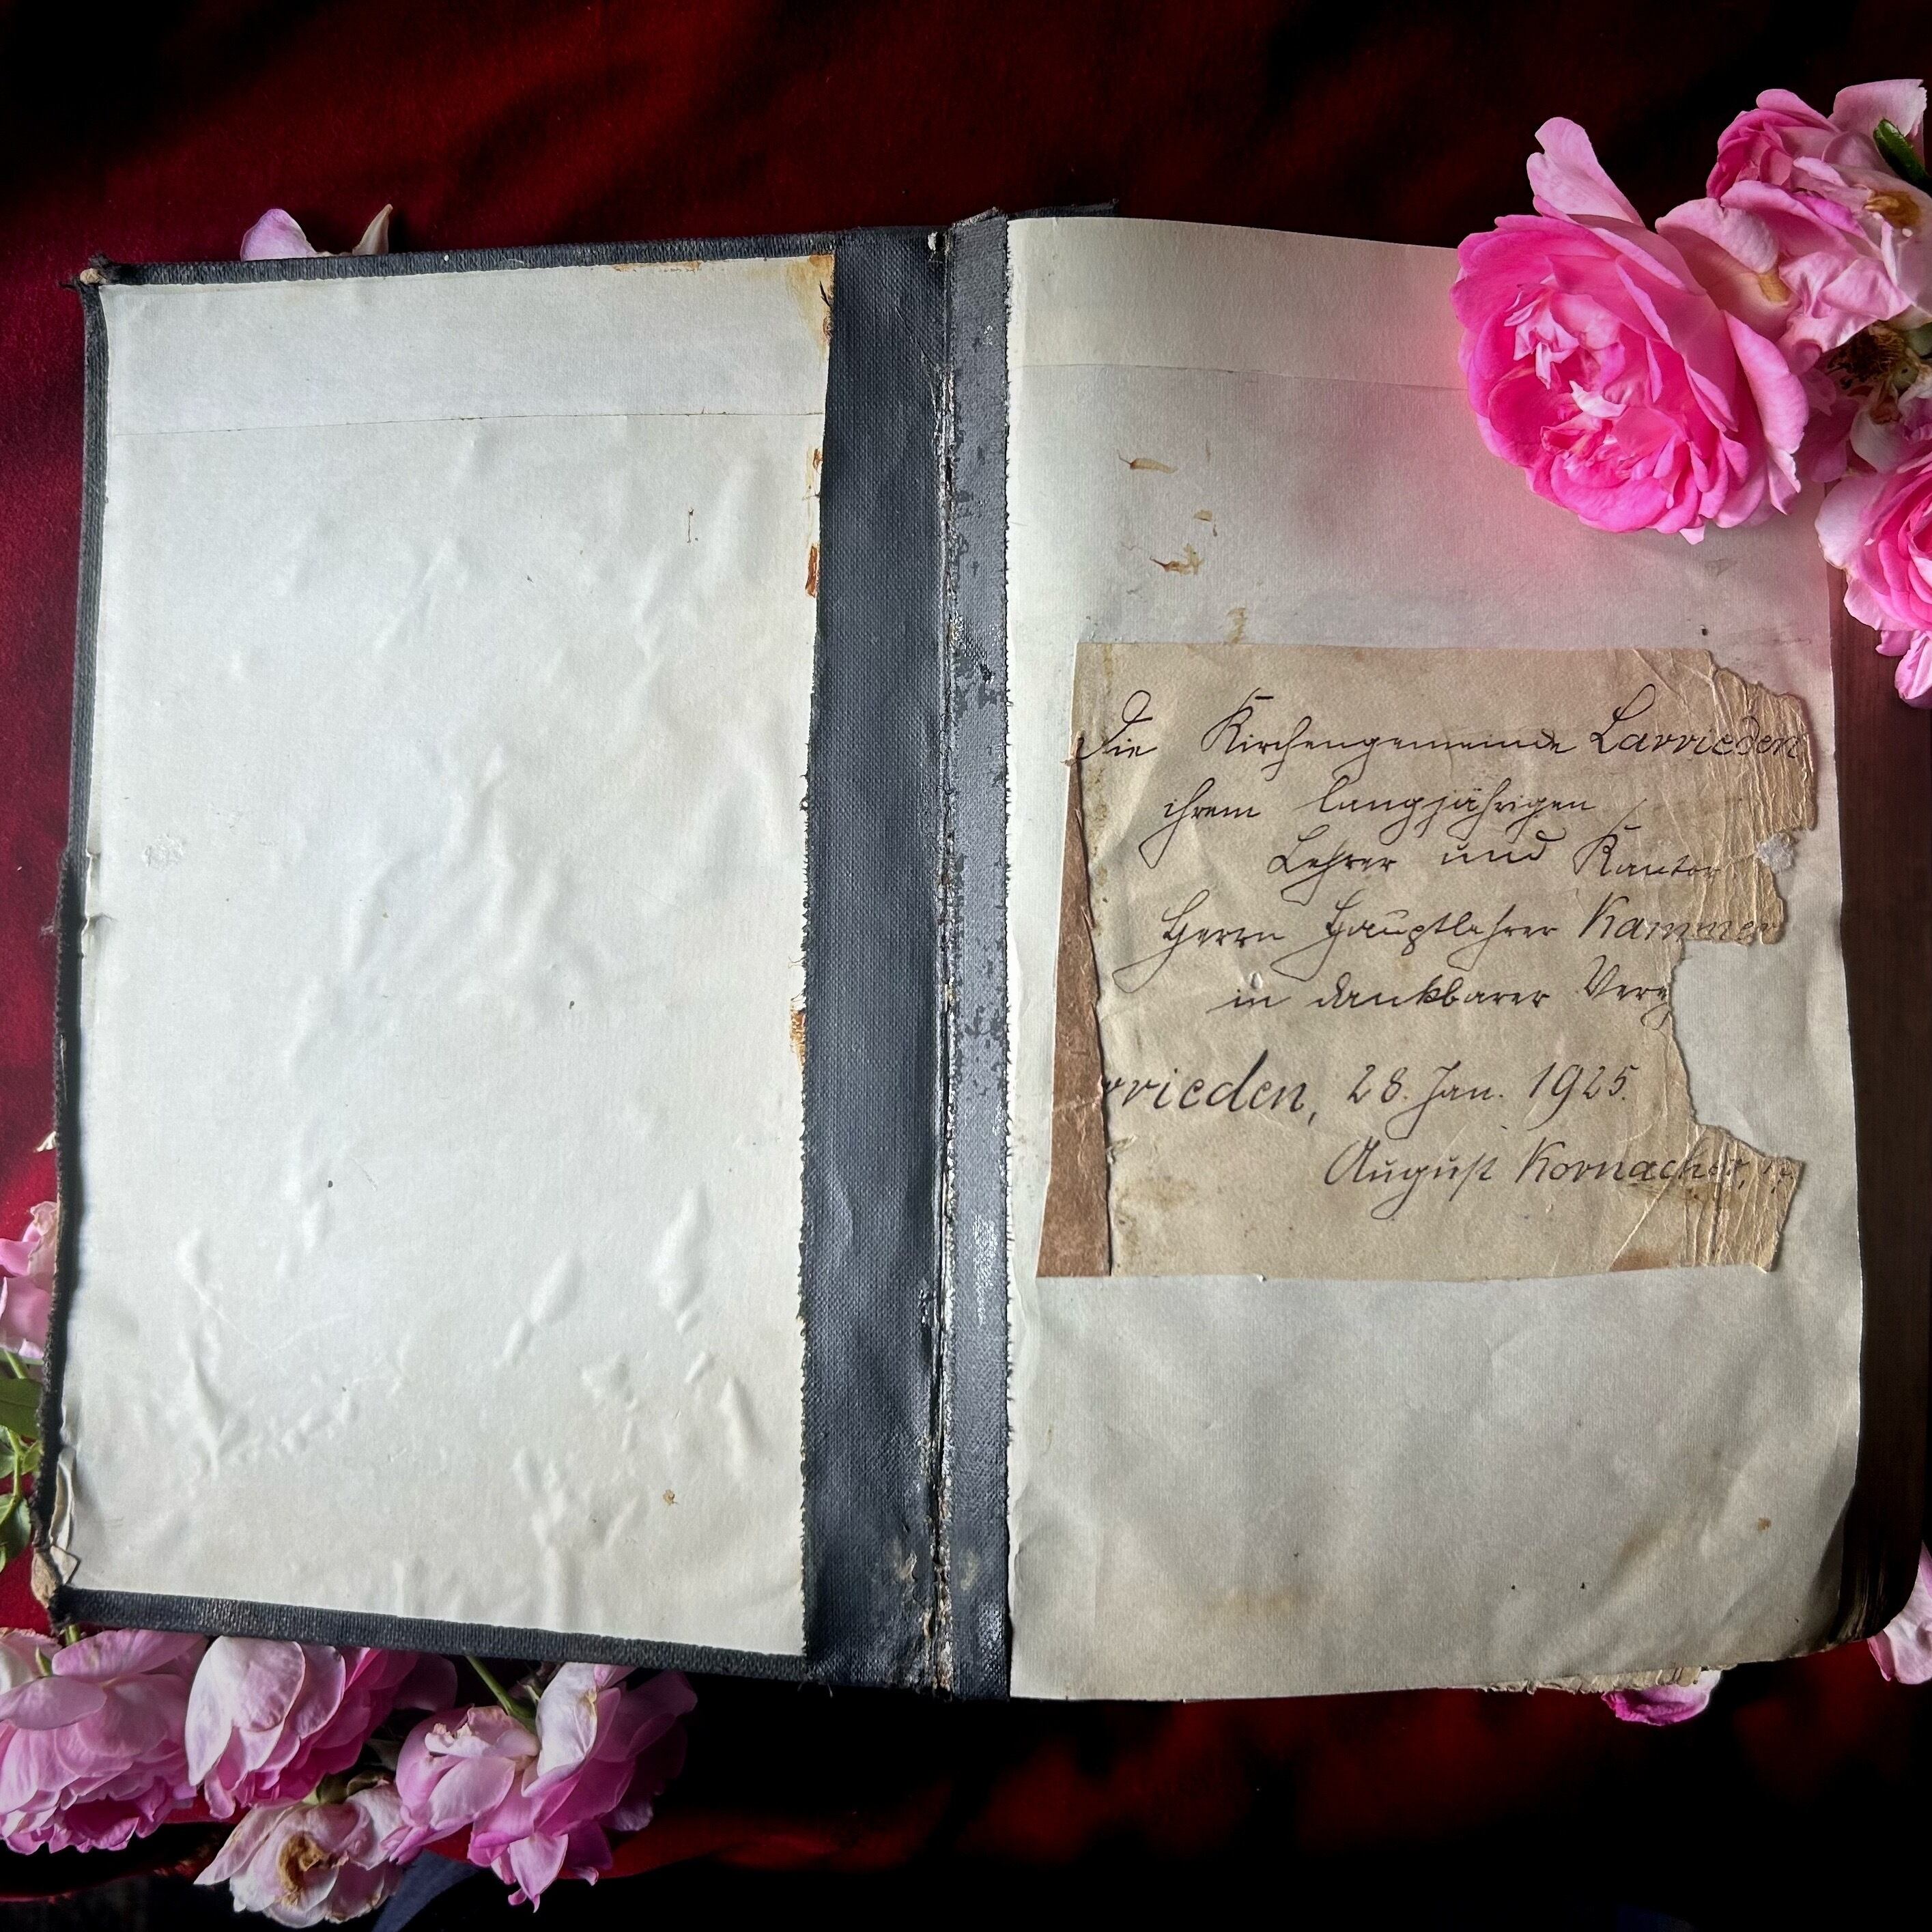 Die Kirchengemeinde Larrieden
ihrem langjährigen
Lehrer und Kantor
Herrn Hauptlehrer Kammer
in dankbarer Vere
rrieden, 28. Jan. 1925.
August Kornacher,